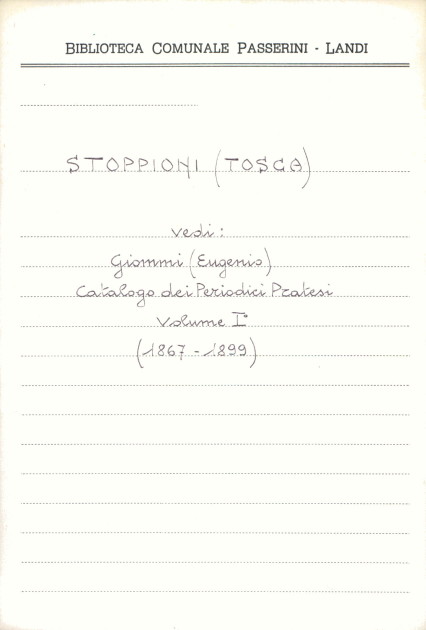 BIBLIOTECA COMUNALE PASSERINI - LANDI
STOPPIONI (TOSCA)
vedi:
Giommi (Eugenio)
Catalogo dei Periodici Pratesi
Volume I°
(1867-1899)